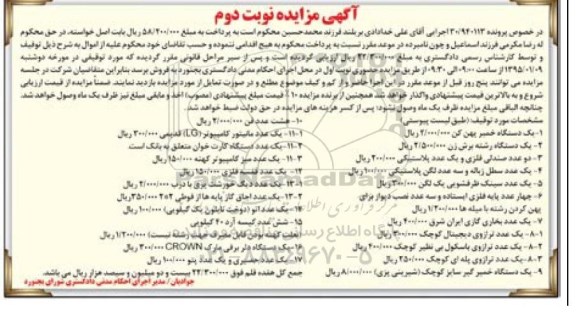 آگهی مزایده نوبت دوم
در خصوص پرونده ۳۰/۹۴۰۱۱۳ اجرایی آقای علی خدادادی بربلند فرزند محمدحسین محکوم است به پرداخت به مبلغ ۵۸/۲۰۰/۰۰۰ ریال بابت اصل خواسته، در حق محکوم
له رضا مکرمی فرزند اسماعیل و چون نامبرده در موعد مقرر نسبت به پرداخت محکوم به هیچ اقدامی ننموده و حسب تقاضای خود محکوم علیه از اموال به شرح ذیل توقیف
و توسط کارشناس رسمی دادگستری به مبلغ ریال ارزیابی گردیده است و پس از سیر مراحل قانونی مقرر گردیده که مورد توقیفی در مورخه دوشنبه
۱۳۹۵/۰۱/۰۹ از ساعت ۰۹:۰۰ الی ۰۹:۳۰ از طریق مزایده حضوری نوبت اول در محل اجرای احکام مدنی دادگستری بجنورد به فروش برسد بنابراین متقاضیان شرکت در جلسه
مزایده می توانند پنج روز قبل از موعد مقرر در این اجرا حاضر و از کم و کیف موضوع مطلع و در صورت تمایل از مورد مزایده بازدید نمایند. ضمناً مزایده از قیمت ارزیابی
شروع و به بالاترین قیمت پیشنهادی واگذار خواهد شد همچنین از برنده مزایده ۱۰٪ قیمت پیشنهادی (مصوب) اخذ و مابقی مبلغ نیز ظرف یک ماه وصول خواهد شد.
چنانچه الباقی مبلغ مزایده ظرف یک ماه وصول نشود؛ پس از کسر هزینه های مزایده در حق دولت ضبط خواهد شد.
مشخصات مورد توقیف (طبق لیست پیوستی)
۱- یک دستگاه خمیر پهن کن ۲/۰۰۰/۰۰۰ ریال
۲- یک دستگاه رشته برش زن ۲/۵۰۰/۰۰۰ ریال
۳- دو عدد صندلی فلزی و یک عدد پلاستیکی ۲۰۰/۰۰۰ ریال
۴- یک عدد سطل زباله و سه عدد لگن پلاستیکی ۱۰۰/۰۰۰ ریال
۵- یک عدد سینک ظرفشویی یک لگن ۳۰۰/۰۰۰ ریال
۶- چهار عدد پایه فلزی ایستاده و سه عدد نصب دیوار برای
پهن کردن رشته با میله ها ۱/۲۰۰/۰۰۰ ریال
۷- یک عدد بخاری گازی ایران شرق ۴۰۰/۰۰۰ ریال
۸-۱- یک عدد ترازوی دیجیتال کوچک ۳۰۰/۰۰۰ ریال
۸-۲- یک عدد ترازوی باسکول بی نظیر کوچک ۴۰۰/۰۰۰ ریال
۸-۳- یک عدد ترازوی پله ای کوچک ۲۵۰/۰۰۰ ریال
۹- یک دستگاه خمیر گیر سایز کوچک (شیرینی پزی) ۸/۰۰۰/۰۰۰ ریال
۱۰- هشت عدد فن ۲/۰۰۰/۰۰۰ ریال
۱۱-۱- یک عدد مانیتور کامپیوتر (LG) قدیمی ۳۰۰/۰۰۰ ریال
۱۱-۲- یک عدد دستگاه کارت خوان متعلق به بانک است.
۱۱-۳- یک عدد میز کامپیوتر کهنه ۱۵۰/۰۰۰ ریال
۱۲- یک عدد قفسه فلزی ۱۵۰/۰۰۰ ریال
۱۳- یک عدد دیگ خورشت پزی با درب ۲/۰۰۰/۰۰۰ ریال
۲- یک عدد اجاق گاز پایه ها از قوطی ۲×۲ ۳۵۰/۰۰۰ ریال
۱۷- یک عدد اتو (دوخت نایلون یک کیلویی) ۱۰۰/۰۰۰ ریال
۱۵- شش عدد کیسه آرد ۴۰ کیلویی
۱/۲۰۰/۰۰۰ ریال
۱۶- یک دستگاه دلر برقی مارک CROWN ۳۰۰/۰۰۰ ریال
۱۷- یک عدد حصیری و یک عدد پتو ۱۰۰/۰۰۰ ریال
جمع کل هفده قلم فوق ۲۲/۳۰۰/۰۰۰ بیست و دو میلیون و سیصد هزار ریال می باشد.
جوادیان / مدیر اجرای احکام مدنی دادگستری شورای بجنورد